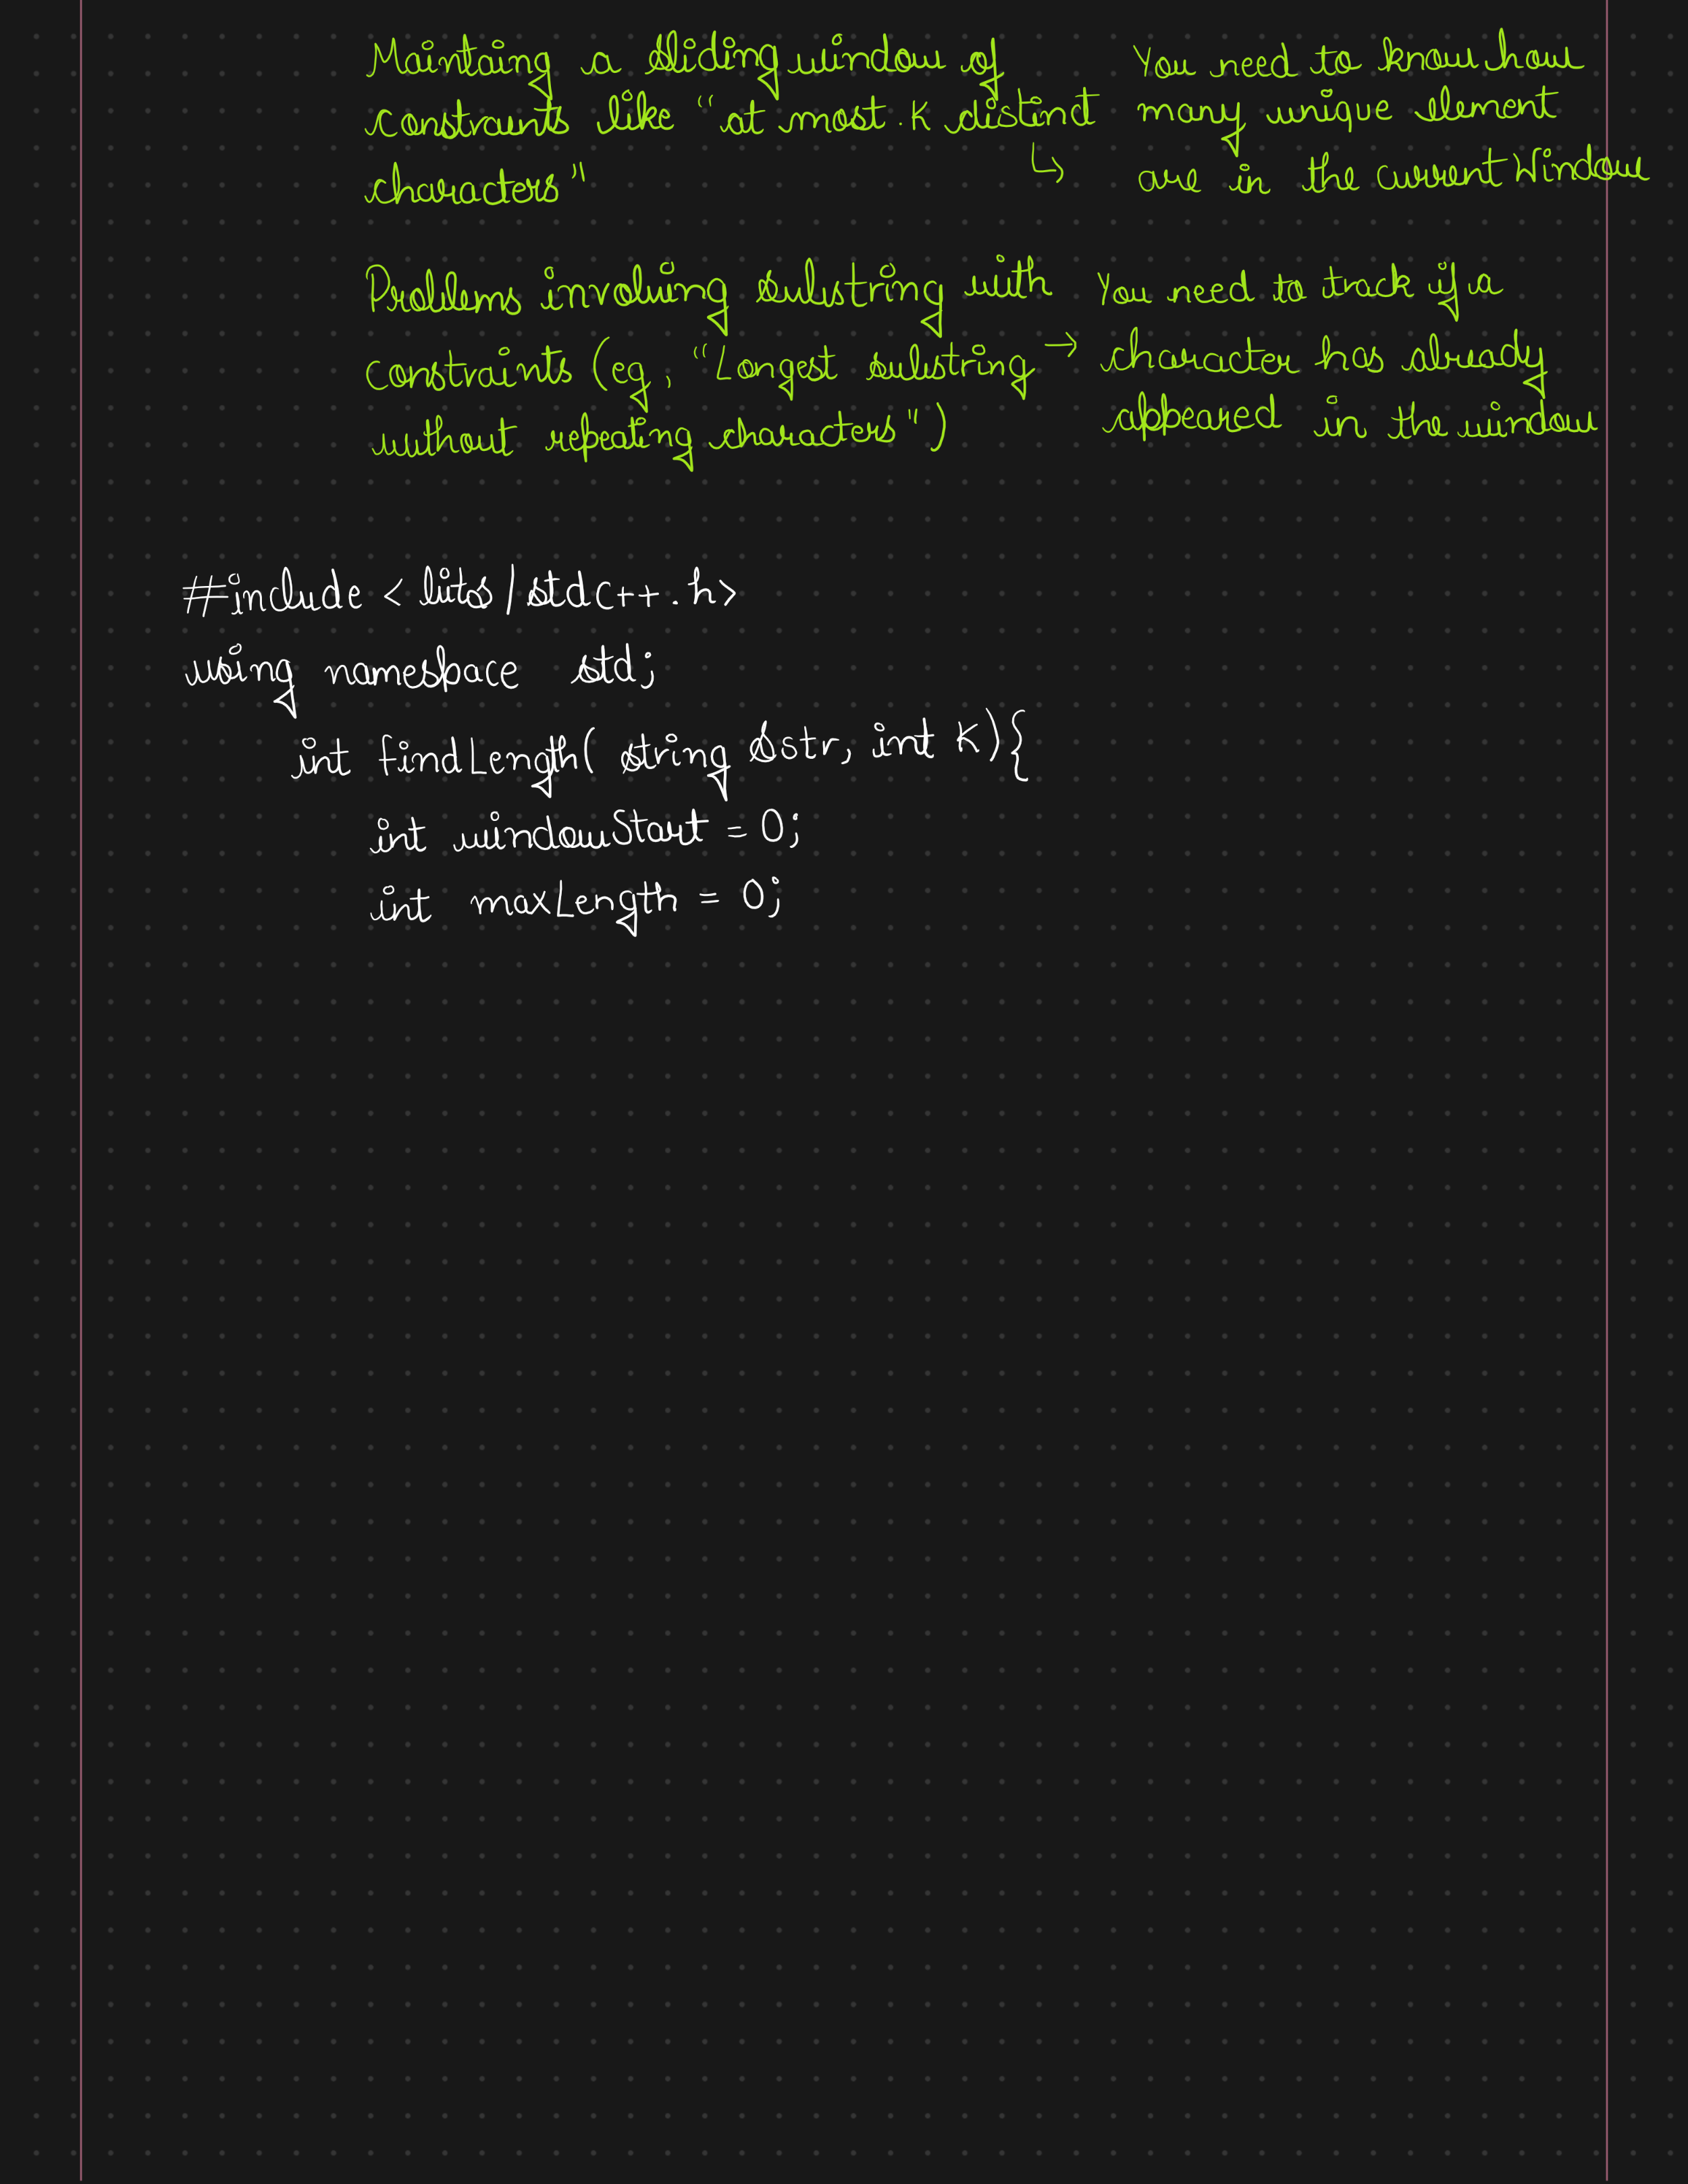 Maintaing a sliding window of
constraints like "at most K distinct
characters"
↳ You need to know how
many unique element
are in the current Window
Problems involving substring with
constraints (eg, "Longest substring
without repeating characters")
→ You need to track if a
character has already
appeared in the window
#include <bits/stdc++.h>
using namespace std;
int findLength( string &str, int K){
int windowStart = 0;
int maxLength = 0;